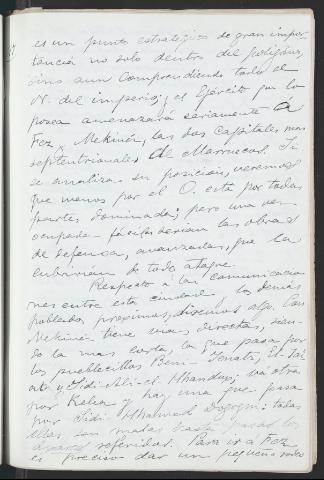 es un punto estratégico de gran impor-
tancia no solo dentro del polígono,
sino aun comprendiendo todo el
N. del imperio; el Ejército que lo
posea amenazará seriamente á
Fez y Mekinez, las dos capitales mas
septentrionales de Marruecos. Si
se analiza su posicion, veremos
que menos por el O. esta por todas
partes dominada; pero una vez
ocupada fáciles serian las obras
de defensa, avanzadas, que la
cubririan de todo ataque.
Respecto á las comunicacio
nes entre esta ciudad y los demás
poblados proximos, diremos algo. Con
Mekinez tiene mas directa, sien-
do la mas corta, la que pasa por
los pueblecillos Beni
y Sidi-Ali-el; otra
por Kelea y hay una que pasa
por Sidi Mhamed; todas
ellas son malas hasta pasar los
referidos. Para ir a Fez
es preciso dar un pequeño rodeo